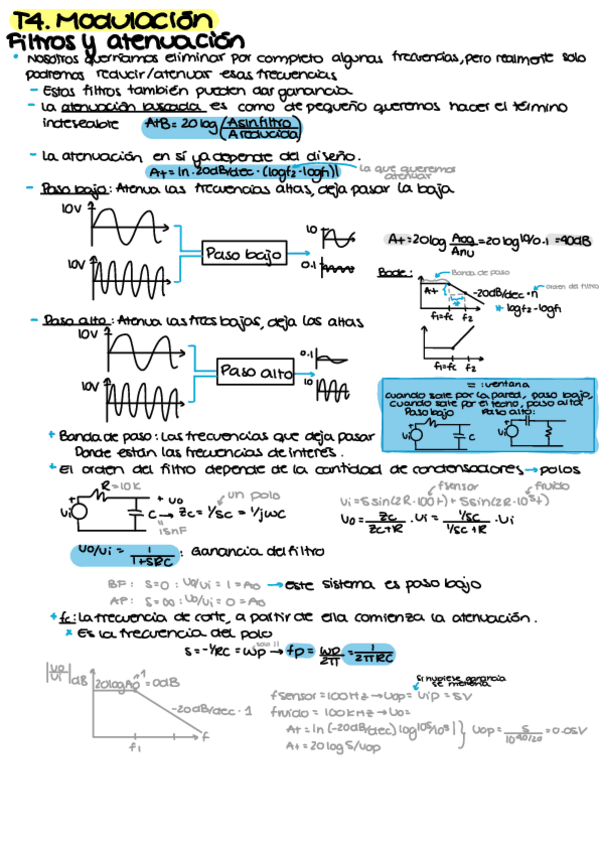 T4. Modulación
Filtros y atenuación
• Nosotros querríamos eliminar por completo algunas frecuencias, pero realmente solo
podremos reducir/atenuar esas frecuencias
- Estos filtros también pueden dar ganancia
- La atenuación buscada es como de pequeño queremos hacer el término
indeseable AtB = 20log (A sin filtro / A reducida)
- La atenuación en sí ya depende del diseño.
At = |n · 20dB/dec · (logf2 - logf1)| la que queremos
atenuar
- Paso bajo: Atenua las frecuencias altas, deja pasar la baja
10V
10V
Paso bajo
1.0
0.1
20log 10/0.1 = 40dB
Bode:
Banda de paso
At
-20dB/dec · n
orden del filtro
* logf2 - logf1
f1=fc f2
- Paso alto: Atenua las fres bajas, deja las altas
10V
10V
Paso alto
0.1
10
f1=fc f2
= : ventana
cuando sale por la pared, paso bajo,
cuando sale por el techo, paso alto
Paso bajo Paso alto:
Vi C Vi
+ Banda de paso: Las frecuencias que deja pasar
Donde están las frecuencias de interés.
+ El orden del filtro depende de la cantidad de condensadores → polos
R = 10K
Vi
+ Vo
un polo
C → Zc = 1/SC = 1/jωC
15nF
fsensor fruido
Vi = 5sin(2π·100t) + 5sin(2π·10⁵t)
Vo = Zc/(Zc+R) · Vi = (1/SC)/(1/SC + R) · Vi
Vo/Vi = 1/(1+SRC) : Ganancia del filtro
BF: S=0 : Vo/Vi = 1 = A0 → este sistema es paso bajo
AF: S=∞ : Vo/Vi = 0 = A∞
+ fc: La frecuencia de corte, a partir de ella comienza la atenuación.
* Es la frecuencia del polo
S = -1/RC = ωp → fp = ωp/2π = 1/2πRC
solo ||
|Vo/Vi| dB
20logA0 = 0dB
1
-20dB/dec · 1
f
f1
si hubiese ganancia
se metería
fsensor = 100Hz → Vop = Vip = 5V
fruido = 100KHz → Vo =
At = |n (-20dB/dec) log 10⁵/10³|
At = 20log 5/Vop
Vop = 5/10^(40/20) = 0.05V